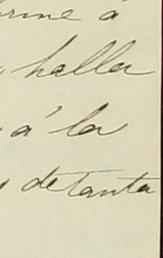 orme á
halla
á la
de tanta